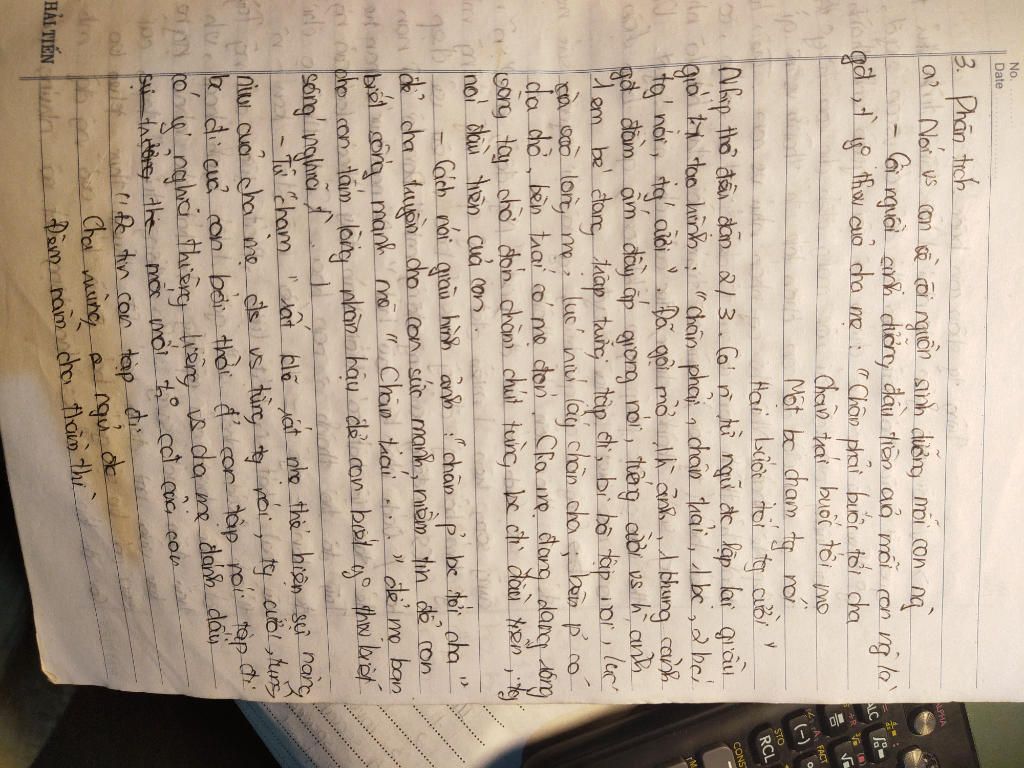 No.
Date
3. Phân tích
a, Nói vs con về cội nguồn sinh dưỡng mỗi con ng
- Cội nguồn sinh dưỡng đầu tiên của mỗi con ng là
gđ, t² yº thw của cha mẹ: "Chân phải bước tới cha
Chân trái bước tới mẹ
Một bc chạm tg nói
Hai bước tới tg cười"
Nhịp thơ đều đặn 2/3. Có n² từ ngữ đc lặp lại giàu
giá trị tạo hình: "chân phải, chân trái, 1 bc, 2 bc,
tg nói, tg cười". Đã gợi mở h ảnh 1 khung cảnh
gđ đầm ấm đầy ắp giọng nói, tiếng cười vs h ảnh
1 em bé đang chập chững tập đi, bi bô tập nói, lúc
sà vào lòng mẹ, lúc níu lấy chân cha, bên p có
cha đỡ, bên trái có mẹ đón. Cha mẹ đang dang rộng
vòng tay chờ đón chăm chút từng bc đi đầu tiên, tg
nói đầu tiên của con.
- Cách nói giàu hình ảnh "chân p bc tới cha"
để cha truyền cho con sức mạnh, niềm tin để con
biết sống mạnh mẽ "Chân trái ..." để mẹ ban
cho con tấm lòng nhân hậu để con biết yº thw biết
sống nghĩa tº.
- Từ chạm " rất khẽ rất nhẹ thể hiện sự nâng
niu của cha mẹ đc vs từng tg nói, tg cười, từng
bc đi của con bởi thời đ² con tập nói tập đi
có ý nghĩa thiêng liêng vs cha mẹ đánh dấu
mốc mới tº cđ của con
"Đi tin con tập đi
Cha mừng p ngủ đc
Đêm nằm cho thầm thì
HẢI TIẾN
ALPHA
CALC
STO
RCL
(-)
FACT
CONST